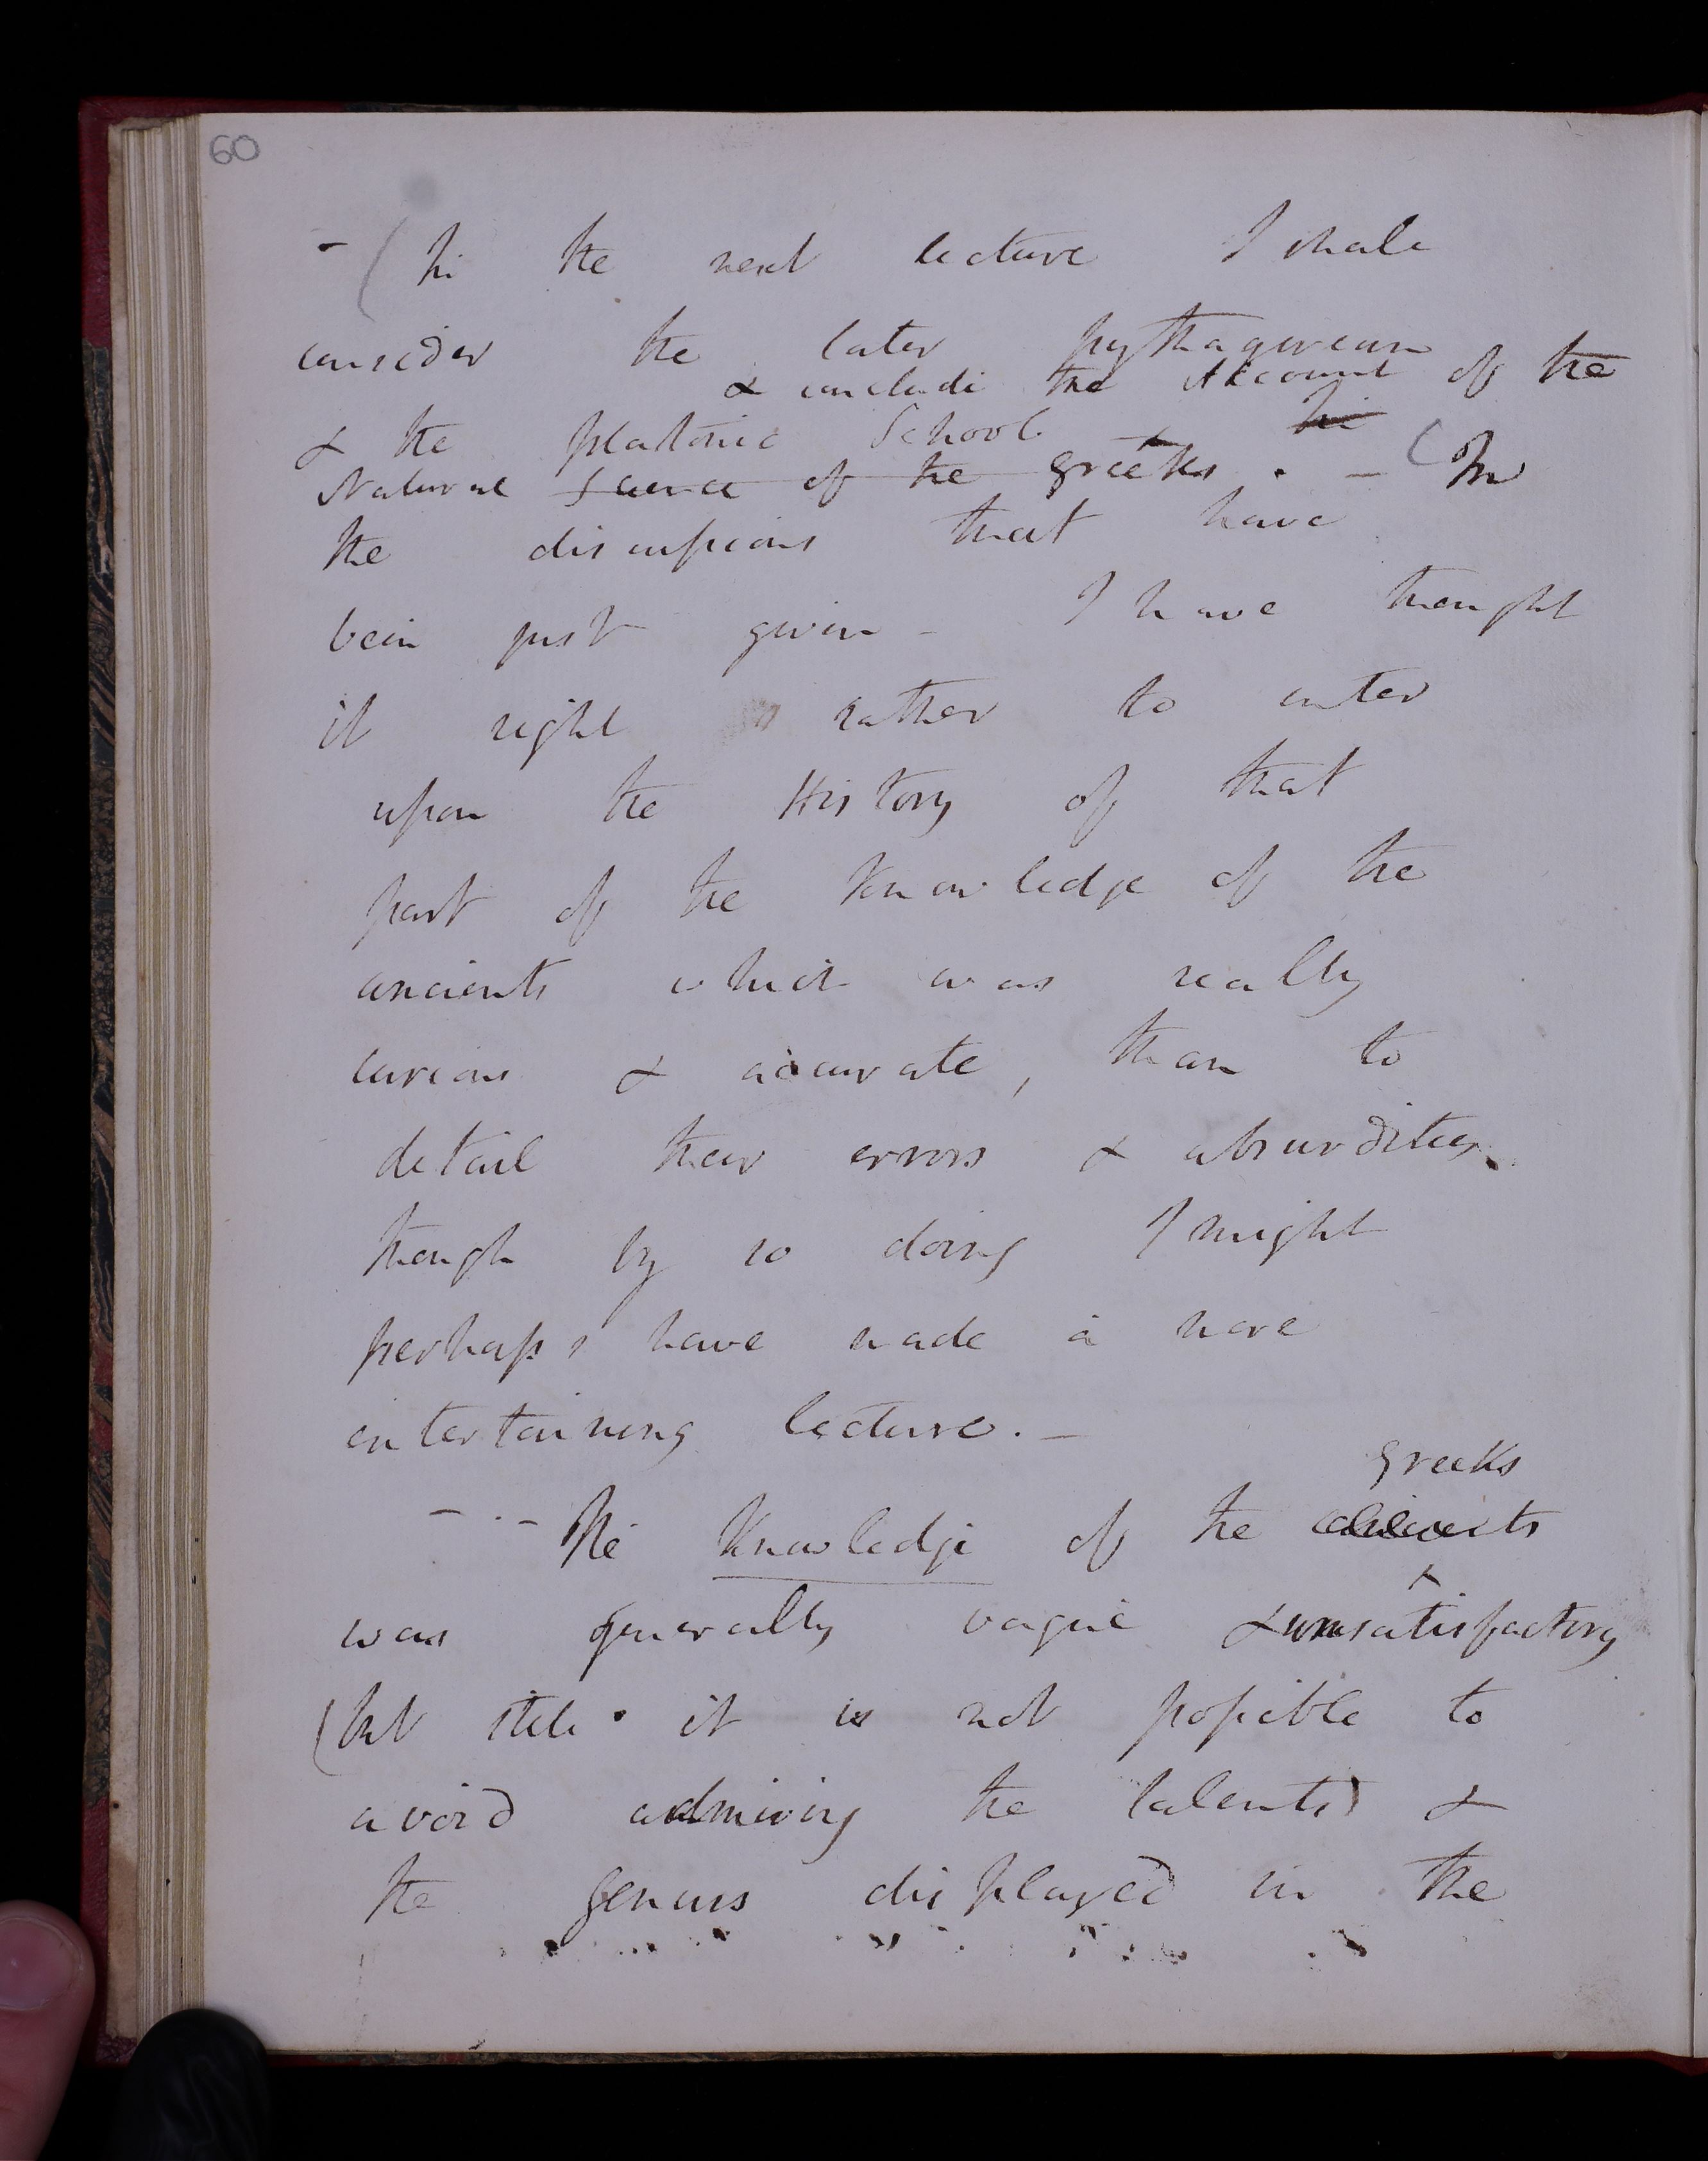 60
- (In the next lecture I shall
consider the later pythagorean
& conclude the Account of the
& the platonic School. In
Natural Science of the greeks. - (In
the discussions that have
been just given - I have thought
it right rather to enter
upon the History of that
part of the Knowledge of the
ancients which was really
curious & accurate, than to
detail their errors & absurdities
though by so doing I might
perhaps have made a more
entertaining lecture. -
greeks
- . - The Knowledge of the ancients
was generally vague & unsatisfactory
(but still it is not possible to
avoid admiring the talents) &
the genius displayed in the